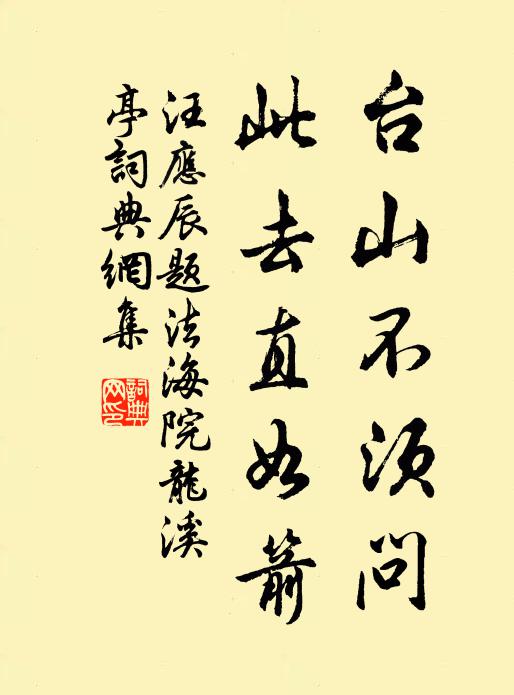 台山不须问
此去直如箭
汪應辰题法海院龍溪
亭詞典網集
詞典網印